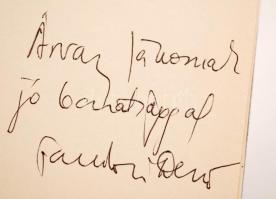 Árvay Jánosnak
jó barátsággal
Tandori Dezső